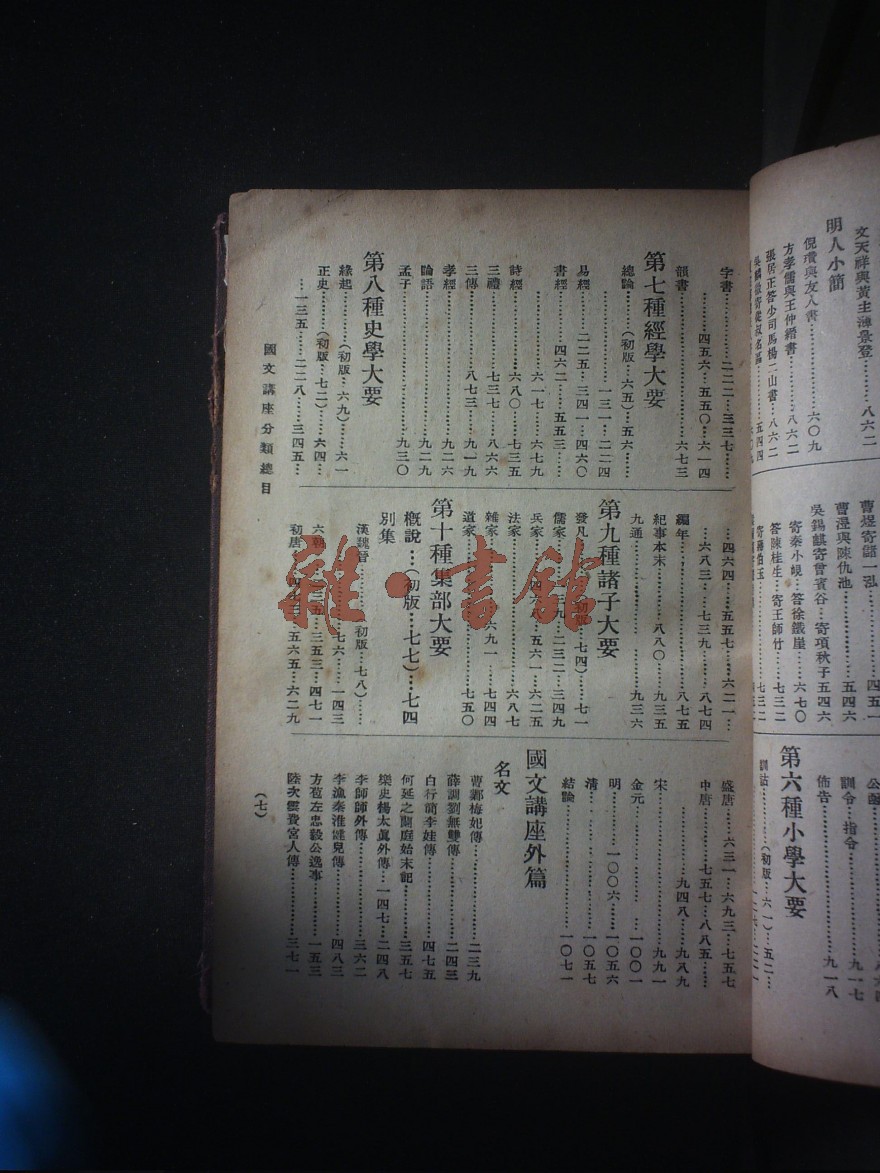 文天祥與黃主簿景登……八六二
明人小簡
倪瓚與友人書……六〇九
方孝孺與王仲縉書……八六二
張居正答少司馬楊二山書……八六二
曹煜寄儲一泓……四五一
曹溼與陳仇池……五四六
吳錫麒寄曾賓谷…寄項秋子五四六
寄秦小峴…答徐鐵崖……六七〇
答陳桂生…寄王師竹……七三二
佈告……九一八
訓令…指令……九一七
第六種小學大要
訓詁……(初版…六一)…五二…
字書……二二二…三三七…
…四五六…五五〇…六一四
韻書……六七三
第七種經學大要
總論……(初版…六五)…五六……
……一三一…二二四
易經……二二五…三四一…四六〇
書經……四六二…五五三……
……六一七…六七九
詩經……六八〇…七三五
三禮……七三七…八六六
三傳……八七三…九一九
孝經……九二六
論語……九二九
孟子……九三〇
第八種史學大要
緣起……(初版…六九)……六一
正史……(初版…七二)……六四…
…一三五……二二八…三四五…
…四六四…五五七…六二一…
…六八三…七三九…八七四
編年……八七五
紀事本末……八八〇…九三五
九通……九三六
第九種諸子大要
發凡……(初版…七四)…七一
儒家……一三九…二三二…三四九
兵家……四六八…五六一…六二五
法家……六八七
雜家……六九一…七四四
道家……七五〇
第十種集部大要
概說…(初版…七七)…七四
別集
漢魏晉……(初版…七八)……
……七六…一四三
六朝……二三五…三五三…四七一
初唐……四七三…五六五…六二九
盛唐……六三一…六九三…七五七
中唐……七五七…八八五……
……九四八…九八九
宋……九九一
金元……一〇〇一
明……一〇〇六……一〇五六
清……一〇五七
結論……一〇七一
國文講座外篇
名文
曹鄴梅妃傳……二三九
薛調劉無雙傳……二四三
白行簡李娃傳……四七五
何延之蘭庭始末記……三五七
樂史楊太眞外傳…一四七…二四八
李師師外傳……三六二
李漁秦淮健兒傳……四八三
方苞左忠毅公逸事……一五三
陸次雲費宮人傳……三七一
國文講座分類總目
(七)
雜·書館